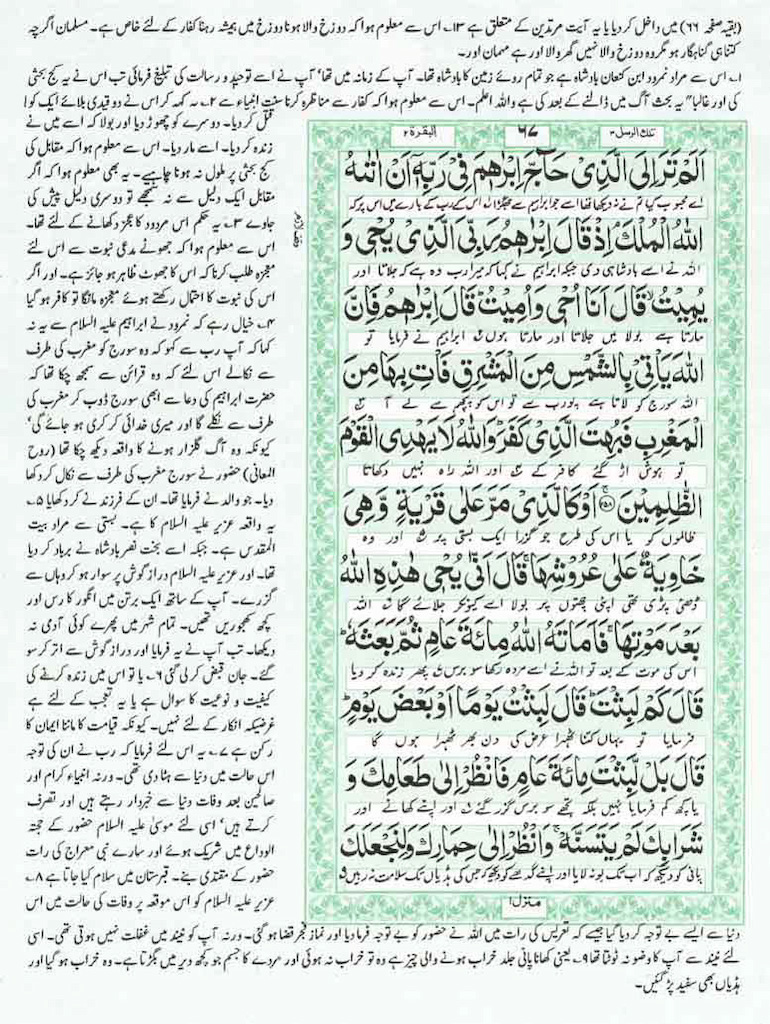 (بقیہ صفحہ ۶۶) میں داخل کر دیا یا یہ آیت مرتدین کے متعلق ہے ۱۳۔ اس سے معلوم ہوا کہ دوزخ والا ہونا دوزخ میں ہمیشہ رہنا کفار کے لئے خاص ہے۔ مسلمان اگرچہ
کتنا ہی گناہگار ہو مگر وہ دوزخ والا نہیں گھر والا اور ہے مہمان اور۔
۱۔ اس سے مراد نمرود ابن کنعان بادشاہ ہے جو تمام روئے زمین کا بادشاہ تھا۔ آپ کے زمانہ میں تھا' آپ نے اسے توحید و رسالت کی تبلیغ فرمائی تب اس نے یہ کج بحثی
کی اور غالبا" یہ بحث آگ میں ڈالنے کے بعد کی ہے واللہ اعلم۔ اس سے معلوم ہوا کہ کفار سے مناظرہ کرنا سنت انبیاء ہے ۲۔ یہ کہہ کر اس نے دو قیدی بلائے ایک کو
قتل کر دیا۔ دوسرے کو چھوڑ دیا اور بولا کہ اسے میں نے
زندہ کر دیا۔ اسے مار دیا۔ اس سے معلوم ہوا کہ مقابل کی
کج بحثی پر ملول نہ ہونا چاہیے۔ یہ بھی معلوم ہوا کہ اگر
مقابل ایک دلیل سے نہ سمجھے تو دوسری دلیل پیش کی
جاوے ۳۔ یہ حکم اس مردود کا عجز دکھانے کے لئے تھا۔
اس سے معلوم ہوا کہ جھوٹے مدعی نبوت سے اس لئے
معجزہ طلب کرنا کہ اس کا جھوٹ ظاہر ہو جائز ہے۔ اور اگر
اس کی نبوت کا احتمال رکھتے ہوئے معجزہ مانگا تو کافر ہو گیا
۴۔ خیال رہے کہ نمرود نے ابراہیم علیہ السلام سے یہ نہ
کہا کہ آپ رب سے کہو کہ وہ سورج کو مغرب کی طرف
سے نکالے اس لئے کہ وہ قرائن سے سمجھ چکا تھا کہ
حضرت ابراہیم کی دعا سے ابھی سورج ڈوب کر مغرب کی
طرف سے نکلے گا اور میری خدائی کرکری ہو جائے گی'
کیونکہ وہ آگ گلزار ہونے کا واقعہ دیکھ چکا تھا (روح
المعانی) حضور نے سورج مغرب کی طرف سے نکال کر دکھا
دیا۔ جو والد نے فرمایا تھا۔ ان کے فرزند نے کر دکھایا ۵۔
یہ واقعہ عزیر علیہ السلام کا ہے۔ بستی سے مراد بیت
المقدس ہے۔ جبکہ اسے بخت نصر بادشاہ نے برباد کر دیا
تھا۔ اور عزیر علیہ السلام دراز گوش پر سوار ہو کر وہاں سے
گزرے۔ آپ کے ساتھ ایک برتن میں انگور کا رس اور
کچھ کھجوریں تھیں۔ تمام شہر میں پھرے کوئی آدمی نہ
دیکھا۔ تب آپ نے یہ فرمایا اور دراز گوش سے اتر کر سو
گئے۔ جان قبض کر لی گئی ۶۔ یا تو اس میں زندہ کرنے کی
کیفیت و نوعیت کا سوال ہے یا یہ تعجب کے لئے ہے
غرضیکہ انکار کے لئے نہیں۔ کیونکہ قیامت کا ماننا ایمان کا
رکن ہے ۷۔ یہ اس لئے فرمایا کہ رب نے ان کی توجہ
اس حالت میں دنیا سے ہٹا دی تھی۔ ورنہ انبیاء کرام اور
صالحین بعد وفات دنیا سے خبردار رہتے ہیں اور تصرف
کرتے ہیں' اسی لئے موسیٰ علیہ السلام حضور کے حجتہ
الوداع میں شریک ہوئے اور سارے نبی معراج کی رات
حضور کے مقتدی بنے۔ قبرستان میں سلام کیا جاتا ہے ۸۔
عزیر علیہ السلام کو اس موقعہ پر وفات کی حالت میں اس
تلك الرسل ۳ ۶۷ البقرة ۲
اَلَمْ تَرَ اِلَى الَّذِىْ حَآجَّ اِبْرٰهٖمَ فِىْ رَبِّهٖٓ اَنْ اٰتٰىهُ
اے محبوب کیا تم نے نہ دیکھا تھا اسے جو ابراہیم سے جھگڑا اس کے رب کے بارے میں اس پر کہ
اللّٰهُ الْمُلْكَ ۘ اِذْ قَالَ اِبْرٰهٖمُ رَبِّىَ الَّذِىْ يُحْىٖ وَ
اللہ نے اسے بادشاہی دی جبکہ ابراہیم نے کہا کہ میرا رب وہ ہے کہ جلاتا اور
يُمِيْتُ ۙ قَالَ اَنَا اُحْىٖ وَاُمِيْتُ ؕ قَالَ اِبْرٰهٖمُ فَاِنَّ
مارتا ہے بولا میں جلاتا اور مارتا ہوں ابراہیم نے فرمایا تو
اللّٰهَ يَاْتِىْ بِالشَّمْسِ مِنَ الْمَشْرِقِ فَاْتِ بِهَا مِنَ
اللہ سورج کو لاتا ہے پورب سے تو اس کو پچھم سے لے آ
الْمَغْرِبِ فَبُهِتَ الَّذِىْ كَفَرَ ؕ وَاللّٰهُ لَا يَهْدِى الْقَوْمَ
تو ہوش اڑ گئے کافر کے اور اللہ راہ نہیں دکھاتا
الظّٰلِمِيْنَ ۝۲۵۸ اَوْ كَالَّذِىْ مَرَّ عَلٰى قَرْيَةٍ وَّهِىَ
ظالموں کو یا اس کی طرح جو گزرا ایک بستی پر اور وہ
خَاوِيَةٌ عَلٰى عُرُوْشِهَا ۚ قَالَ اَنّٰى يُحْىٖ هٰذِهِ اللّٰهُ
ڈھئی پڑی تھی اپنی چھتوں پر بولا اسے کیونکر جلائے گا اللہ
بَعْدَ مَوْتِهَا ۚ فَاَمَاتَهُ اللّٰهُ مِائَةَ عَامٍ ثُمَّ بَعَثَهٗ ؕ
اس کی موت کے بعد تو اللہ نے اسے مردہ رکھا سو برس پھر زندہ کر دیا
قَالَ كَمْ لَبِثْتَ ؕ قَالَ لَبِثْتُ يَوْمًا اَوْ بَعْضَ يَوْمٍ ؕ
فرمایا تو یہاں کتنا ٹھہرا عرض کی دن بھر ٹھہرا ہوں گا
قَالَ بَلْ لَّبِثْتَ مِائَةَ عَامٍ فَانْظُرْ اِلٰى طَعَامِكَ وَ
یا کچھ کم فرمایا نہیں بلکہ تجھے سو برس گزر گئے اور اپنے کھانے اور
شَرَابِكَ لَمْ يَتَسَنَّهْ ۚ وَانْظُرْ اِلٰى حِمَارِكَ وَلِنَجْعَلَكَ
پانی کو دیکھ کہ اب تک بو نہ لایا اور اپنے گدھے کو دیکھ کہ جس کی ہڈیاں تک سلامت نہ رہیں
منزل ۱
دنیا سے ایسے بے توجہ کر دیا گیا جیسے کہ تعریس کی رات میں اللہ نے حضور کو بے توجہ فرما دیا اور نماز فجر قضا ہو گئی۔ ورنہ آپ کو نیند میں غفلت نہیں ہوتی تھی۔ اسی
لئے نیند سے آپ کا وضو نہ ٹوٹتا تھا ۹۔ یعنی کھانا پانی جلد خراب ہونے والی چیز ہے وہ تو خراب نہ ہوئی اور مردے کا جسم جو کچھ دیر میں بگڑتا ہے۔ وہ خراب ہو گیا اور
ہڈیاں بھی سفید پڑ گئیں۔